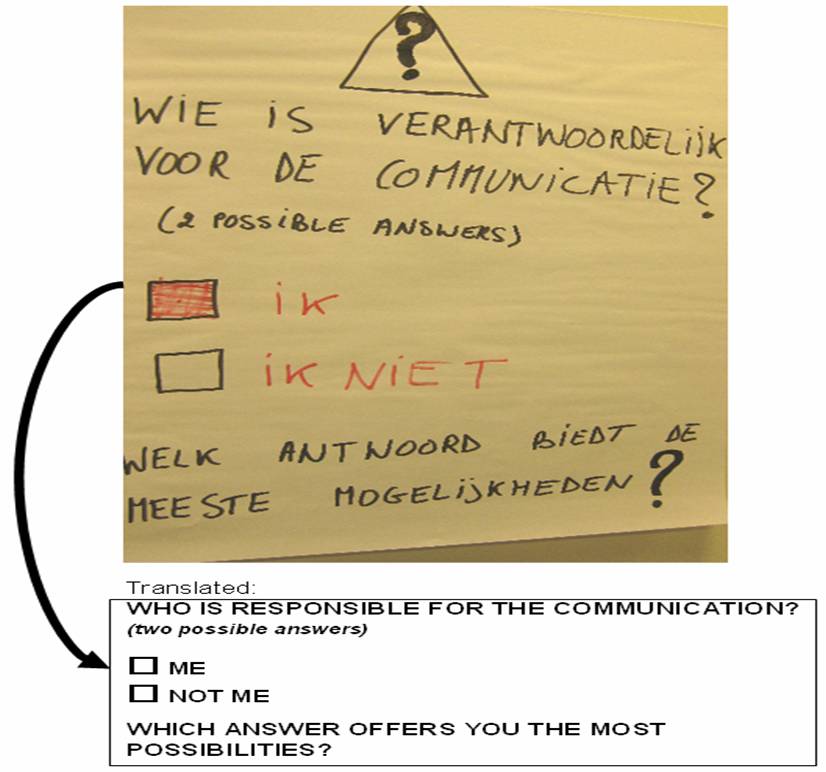 ?
WIE IS VERANTWOORDELIJK
VOOR DE COMMUNICATIE?
(2 POSSIBLE ANSWERS)
IK
IK NIET
WELK ANTWOORD BIEDT DE
MEESTE MOGELIJKHEDEN?
Translated:
WHO IS RESPONSIBLE FOR THE COMMUNICATION?
(two possible answers)
ME
NOT ME
WHICH ANSWER OFFERS YOU THE MOST
POSSIBILITIES?